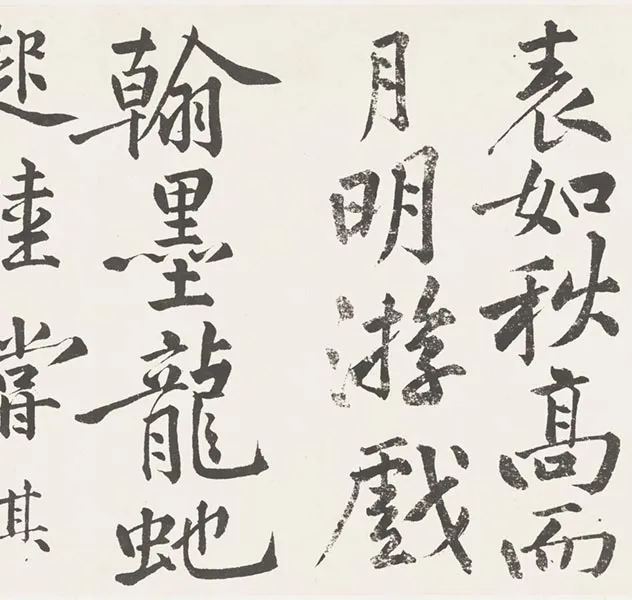 表如秋高而
月明游戲
翰墨龍虵
起陸嘗其